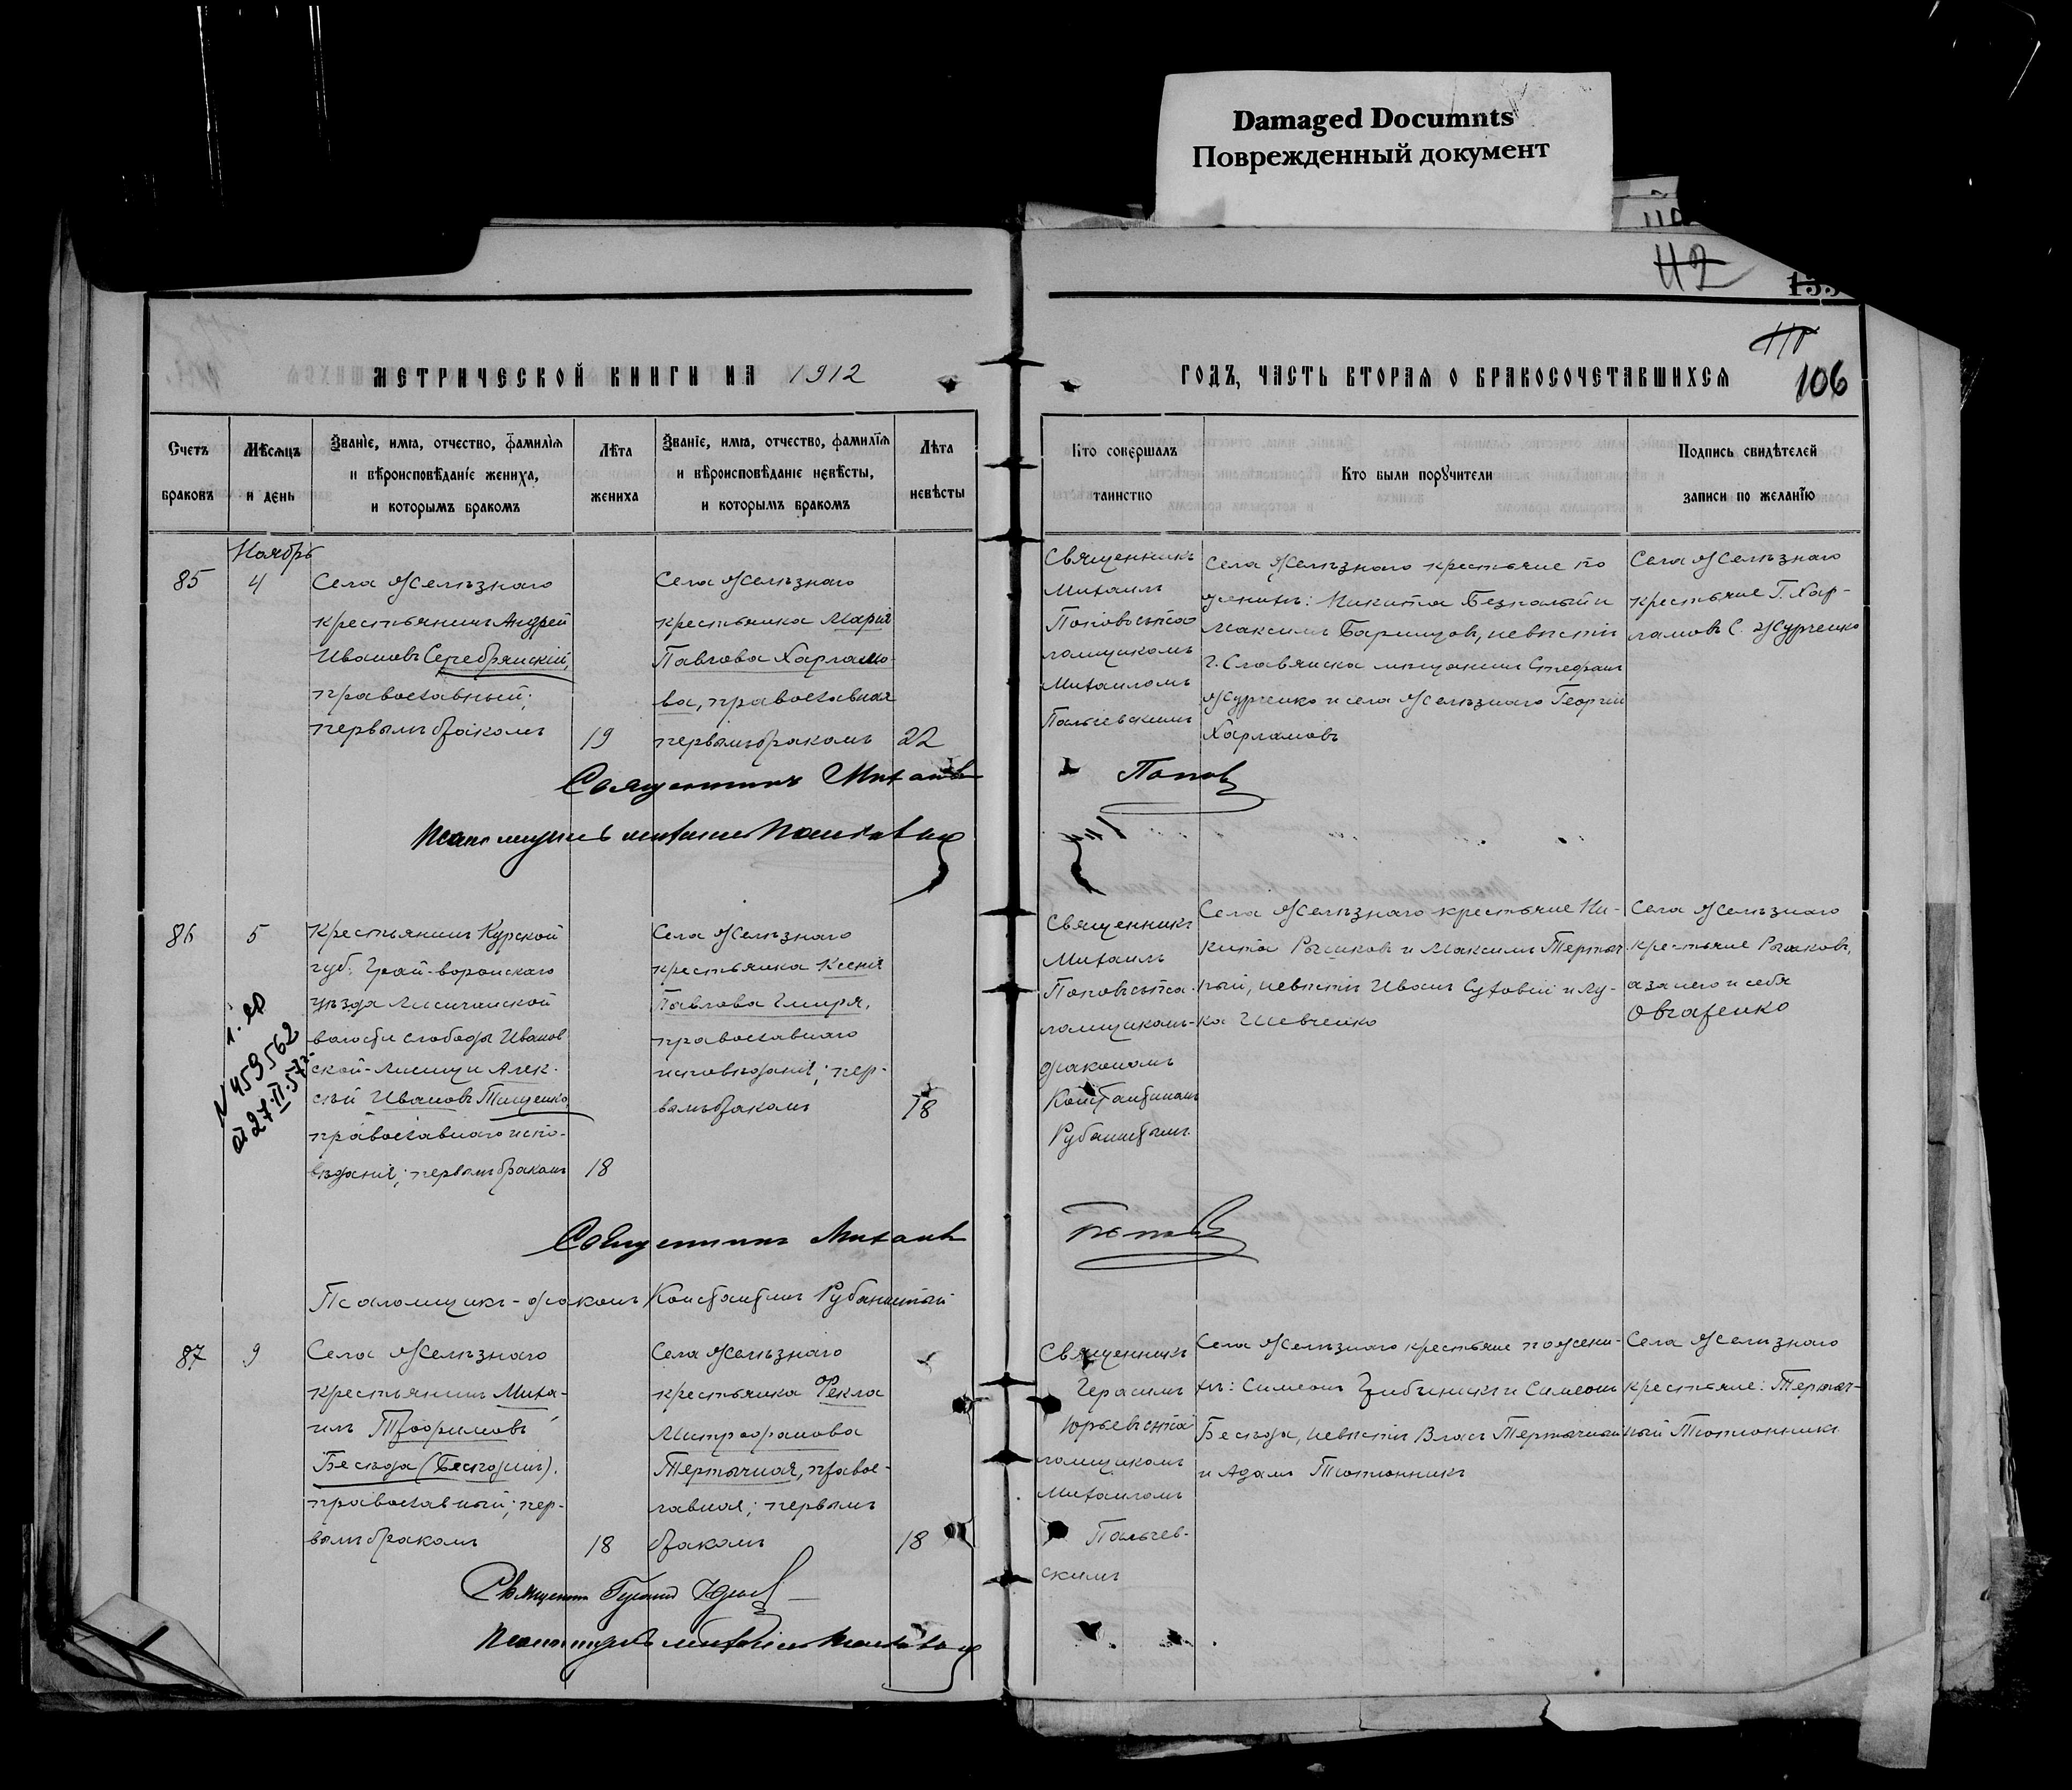 Damaged Documnts
Поврежденный документ
112
110
106
МЕТРИЧЕСКОЙ КНИГИ НА 1912
ГОДЪ, ЧАСТЬ ВТОРАЯ О БРАКОСОЧЕТАВШИХСЯ
Счетъ браковъ
Мѣсяцъ и день
Званіе, имя, отчество, фамилія
и вѣроисповѣданіе жениха,
и которымъ бракомъ
Лѣта жениха
Званіе, имя, отчество, фамилія
и вѣроисповѣданіе невѣсты,
и которымъ бракомъ
Лѣта невѣсты
Кто совершалъ таинство
Кто были поручители
Подпись свидѣтелей
записи по желанію
85
Ноябрь
4
Села Желѣзнаго
крестьянинъ Андрей
Ивановъ Серебрянскій,
православный;
первымъ бракомъ
19
Села Желѣзнаго
крестьянка Марія
Павлова Харламо-
ва, православная
первымъ бракомъ
22
Священникъ
Михаилъ
Поповъ съ пса
ломщикомъ
Михаиломъ
Пальчевскимъ
Села Желѣзнаго крестьяне по
женихѣ: Никита Безпалый и
Максимъ Баринцов, невѣстѣ
г. Славянска мѣщанинъ Стефанъ
Журченко и села Желѣзнаго Георгій
Харламовъ
Села Желѣзнаго
крестьяне Г. Хар-
ламовъ С. Журченко
Священникъ Михаилъ Поповъ
Псаломщикъ Михаилъ
86
5
Крестьянинъ Курской
губ. Грай-воронскаго
уѣзда Лисичанской
волости слободы Иванов
ской-Лисицы Алек-
сѣй Ивановъ Тищенко
православнаго испо-
вѣданія; первымъ бракомъ
18
1. ер
N 459562
от 27.II.57г.
Села Желѣзнаго
крестьянка Ксенія
Павлова Гмиря,
православнаго
исповѣданія; пер-
вымъ бракомъ
18
Священникъ
Михаилъ
Поповъ съ пса
ломщикомъ-
діакономъ
Константиномъ
Рубанистымъ
Села Желѣзнаго крестьяне Ни-
кита Рыжков и Максимъ Тертыч
ный, невѣстѣ Иванъ Суховій и Лу-
ка Шевченко
Села Желѣзнаго
крестьяне Рыжковъ,
а за него и себя
Овчаренко
Священникъ Михаилъ Поповъ
Псаломщикъ-діаконъ Константинъ Рубанистый
87
9
Села Желѣзнаго
крестьянинъ Миха-
илъ Трофимовъ
Бесѣда (Бесѣдинъ),
православный; пер-
вымъ бракомъ
18
Села Желѣзнаго
крестьянка Фекла
Митрофанова
Тертычная, правос-
лавная; первымъ
бракомъ
18
Священникъ
Герасимъ
Юрьевъ съ пса
ломщикомъ
Михаиломъ
Пальчев-
скимъ
Села Желѣзнаго крестьяне по жени-
хѣ: Симеонъ Грибиникъ и Симеонъ
Бесѣда, невѣстѣ Власъ Тертычный
и Адамъ Тютюнникъ
Села Желѣзнаго
крестьяне: Тертыч-
ный Тютюнникъ
Священникъ Герасимъ Юрьевъ
Псаломщикъ Михаилъ